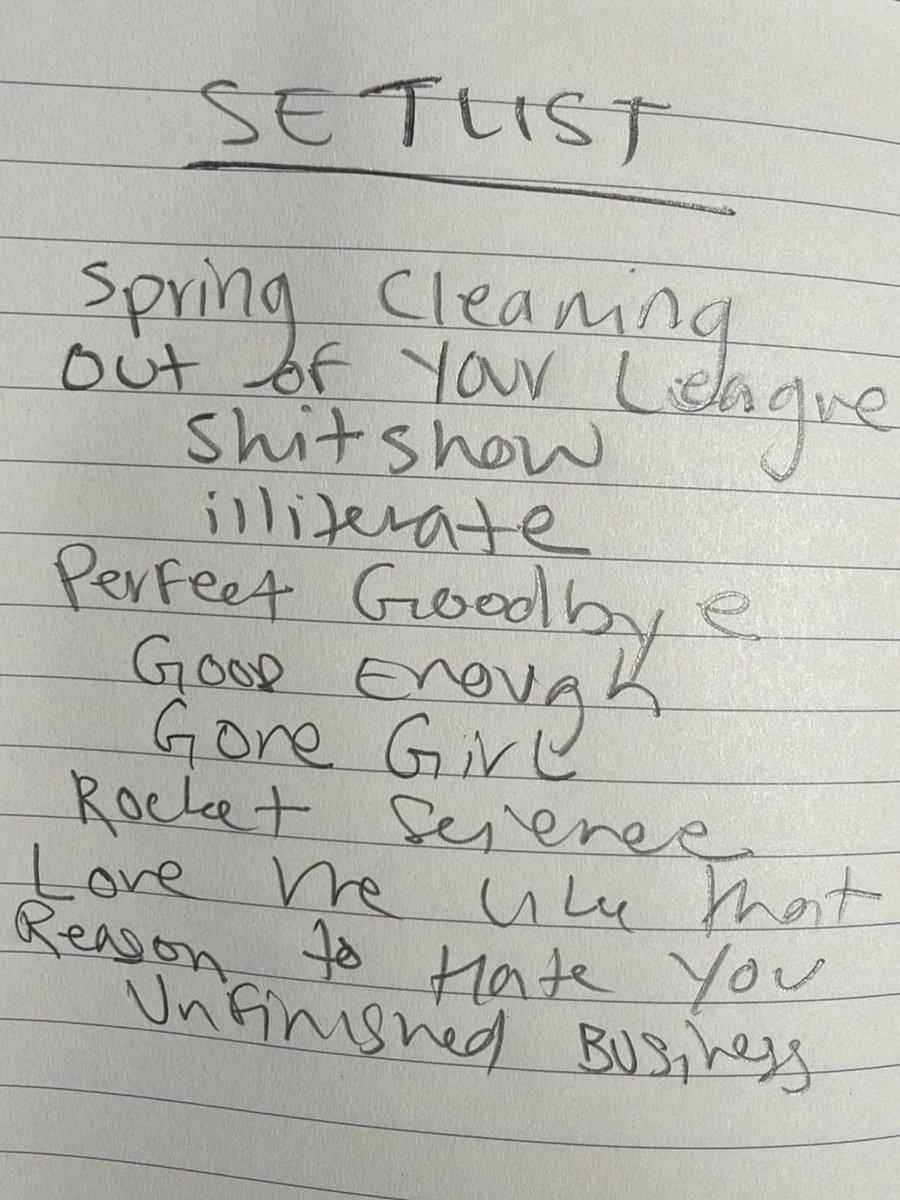 SETLIST
Spring Cleaning
Out of Your League
Shitshow
illiterate
Perfect Goodbye
Good Enough
Gone Girl
Rocket Science
Love Me Like That
Reason to Hate You
Unfinished Business